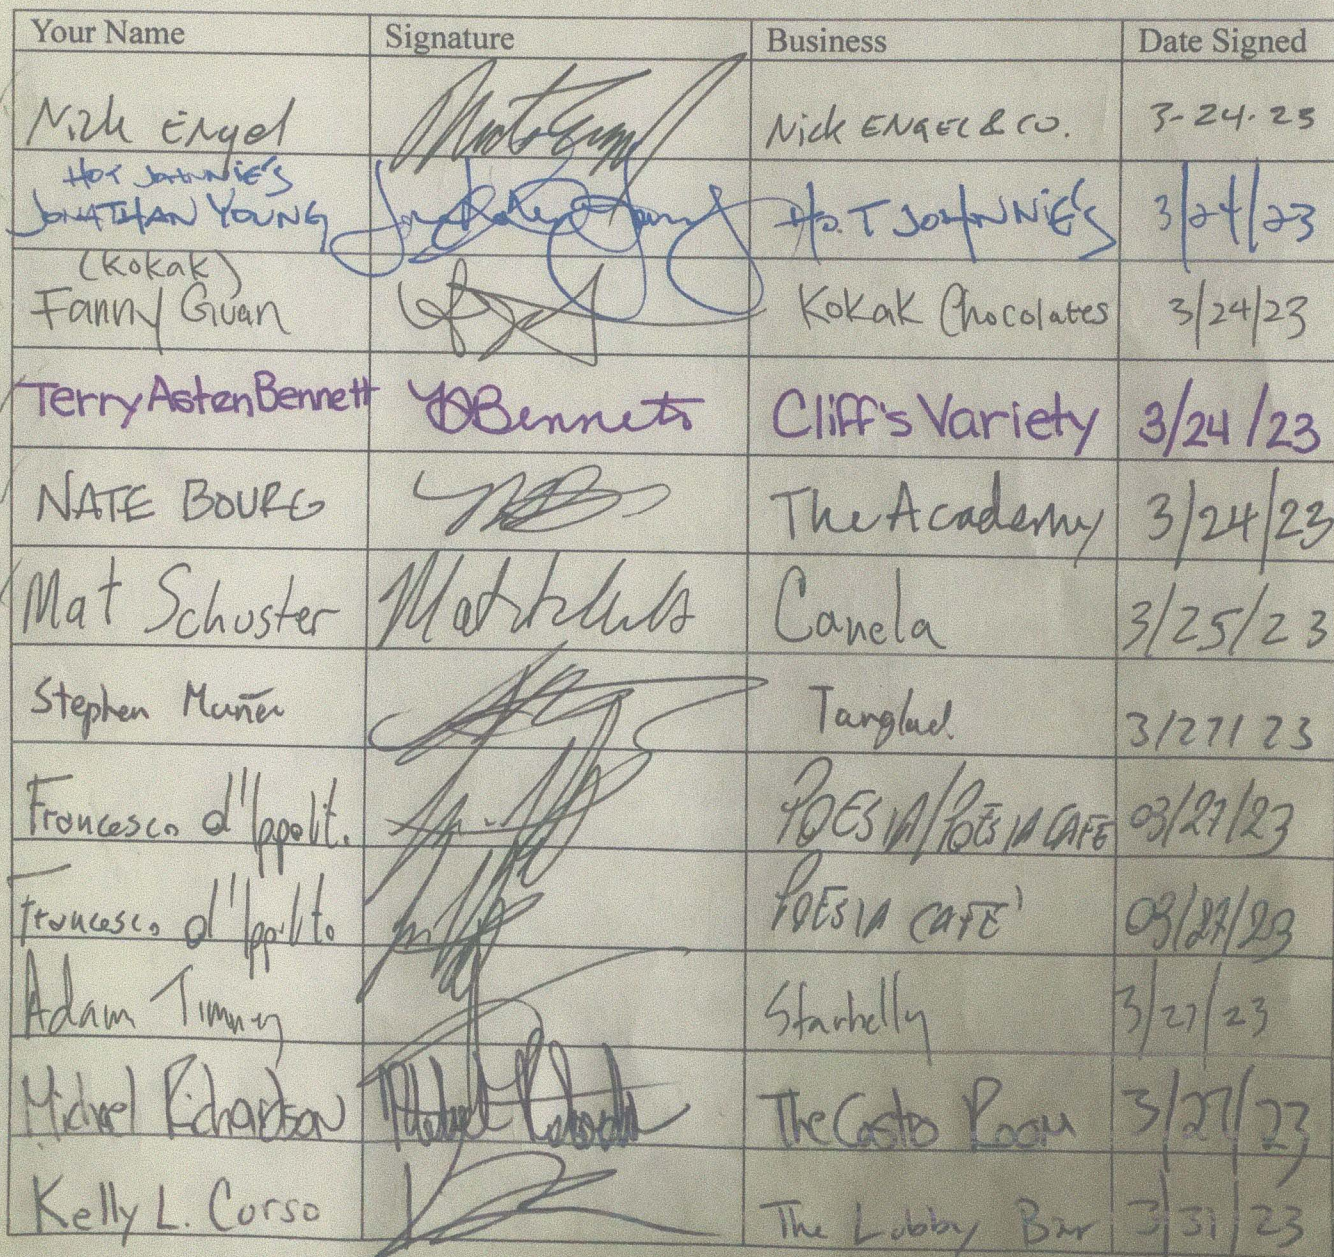 Your Name Signature Business Date Signed
Nick Engel Nick ENGEL & CO. 3-24-23
HOT JOHNNIE'S
JONATHAN YOUNG HOT JOHNNIE'S 3/24/23
(Kokak)
Fanny Guan Kokak Chocolates 3/24/23
Terry Asten Bennett TABennett Cliff's Variety 3/24/23
NATE BOURG The Academy 3/24/23
Mat Schuster Canela 3/25/23
Stephen Tanglad. 3/27/23
Francesco d'Ippolit. POESIA/POESIA CAFE 03/27/23
Francesco d'Ippolito POESIA CAFE' 03/27/23
Adam Timney Starbelly 3/27/23
Michael Richardson The Castro Room 3/27/23
Kelly L. Corso The Lobby Bar 3/31/23